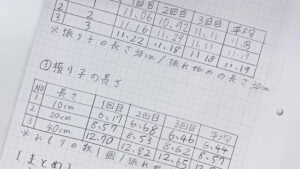 1回目 2回目 3回目 平均
2 2 11.06 10.92 11.11
3 3 11.16 11.29 11.11
11.22 11.18 11.18 11.19
※振り子の長さ30cm/振れ始めの長さ30cm
③振り子の長さ
No 長さ 1回目 2回目 3回目 平均
1 10cm 6.17 6.68 6.46 6.44
2 20cm 8.57 8.53 8.62 8.57
3 40cm 12.70 12.82 12.65
※おもりの数1個/振れ
[まとめ]